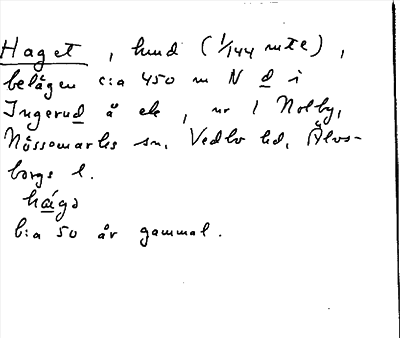 Haget, hmd (1/144 mtl),
belägen c:a 450 m N d i
Ingerud å ek, nr 1 Nolby,
Nössemarks sn, Vedbo hd, Älvs-
borgs l.
hágə
b:a 50 år gammal.